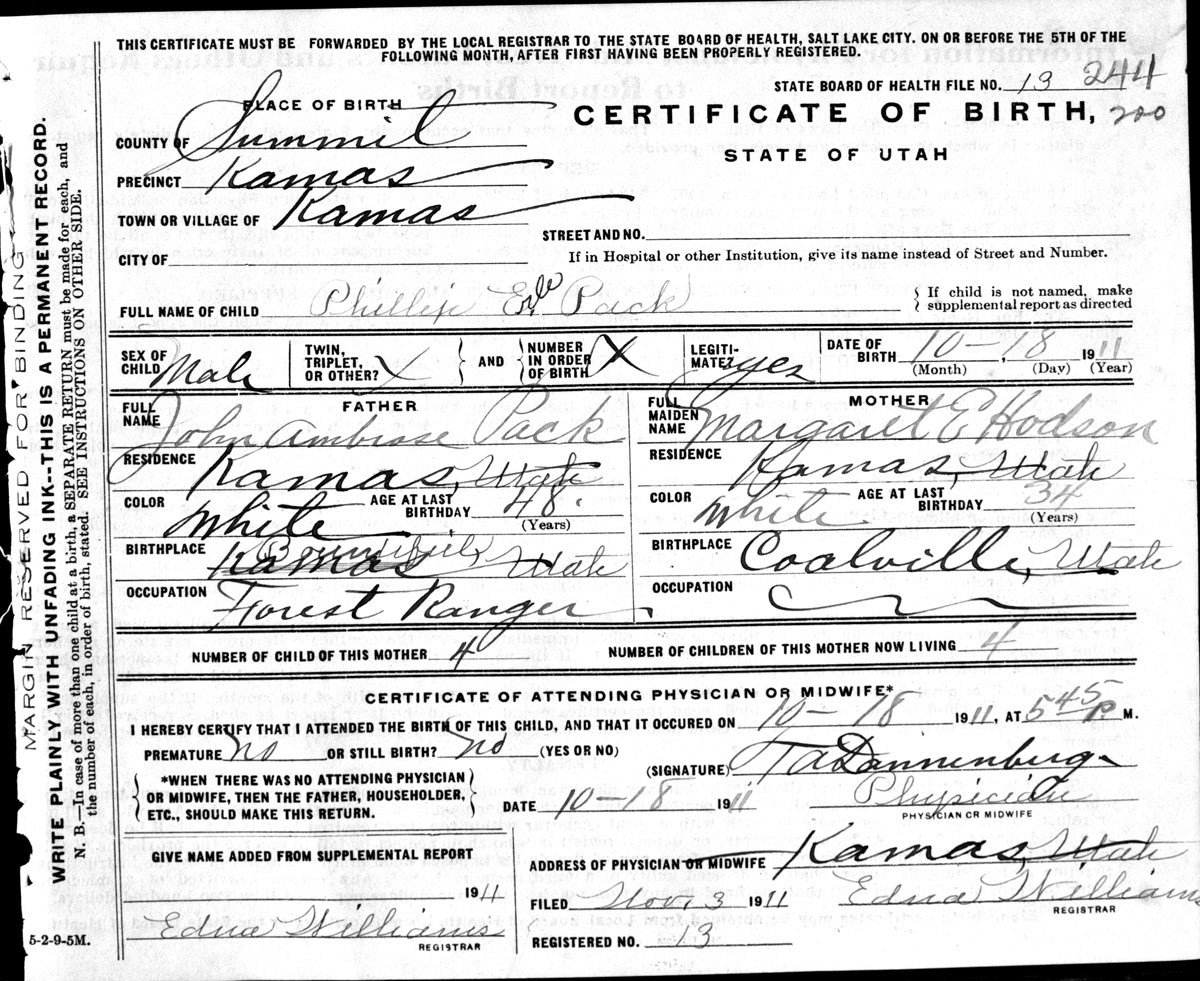 THIS CERTIFICATE MUST BE FORWARDED BY THE LOCAL REGISTRAR TO THE STATE BOARD OF HEALTH, SALT LAKE CITY. ON OR BEFORE THE 5TH OF THE
FOLLOWING MONTH, AFTER FIRST HAVING BEEN PROPERLY REGISTERED.
STATE BOARD OF HEALTH FILE NO. 13 244
PLACE OF BIRTH
CERTIFICATE OF BIRTH, 200
COUNTY OF Summit
STATE OF UTAH
PRECINCT Kamas
TOWN OR VILLAGE OF Kamas
STREET AND NO.
CITY OF
If in Hospital or other Institution, give its name instead of Street and Number.
FULL NAME OF CHILD Phillip Erle Pack
If child is not named, make
supplemental report as directed
SEX OF CHILD Male TWIN, TRIPLET, OR OTHER? X AND NUMBER IN ORDER OF BIRTH X LEGITI-MATE? yes DATE OF BIRTH 10-18, 1911
(Month) (Day) (Year)
FATHER
FULL NAME John Ambrose Pack
RESIDENCE Kamas, Utah
COLOR White AGE AT LAST BIRTHDAY 48
(Years)
BIRTHPLACE Kamas Bountiful, Utah
OCCUPATION Forest Ranger
MOTHER
FULL MAIDEN NAME Margaret E Hodson
RESIDENCE Kamas, Utah
COLOR White AGE AT LAST BIRTHDAY 34
(Years)
BIRTHPLACE Coalville, Utah
OCCUPATION
NUMBER OF CHILD OF THIS MOTHER 4 NUMBER OF CHILDREN OF THIS MOTHER NOW LIVING 4
CERTIFICATE OF ATTENDING PHYSICIAN OR MIDWIFE*
I HEREBY CERTIFY THAT I ATTENDED THE BIRTH OF THIS CHILD, AND THAT IT OCCURED ON 10-18 1911, AT 5 45 P. M.
PREMATURE no OR STILL BIRTH? no (YES OR NO)
(SIGNATURE) T A Dannenburg
*WHEN THERE WAS NO ATTENDING PHYSICIAN
OR MIDWIFE, THEN THE FATHER, HOUSEHOLDER,
ETC., SHOULD MAKE THIS RETURN.
DATE 10-18 1911 Physician
PHYSICIAN OR MIDWIFE
GIVE NAME ADDED FROM SUPPLEMENTAL REPORT
1911
Edna Williams
REGISTRAR
ADDRESS OF PHYSICIAN OR MIDWIFE Kamas, Utah
FILED Nov. 3 1911 Edna Williams
REGISTRAR
REGISTERED NO. 13
5-2-9-5M.
MARGIN RESERVED FOR BINDING
WRITE PLAINLY WITH UNFADING INK--THIS IS A PERMANENT RECORD
N. B.—In case of more than one child at a birth, a SEPARATE RETURN must be made for each, and
the number of each, in order of birth, stated. SEE INSTRUCTIONS ON OTHER SIDE.